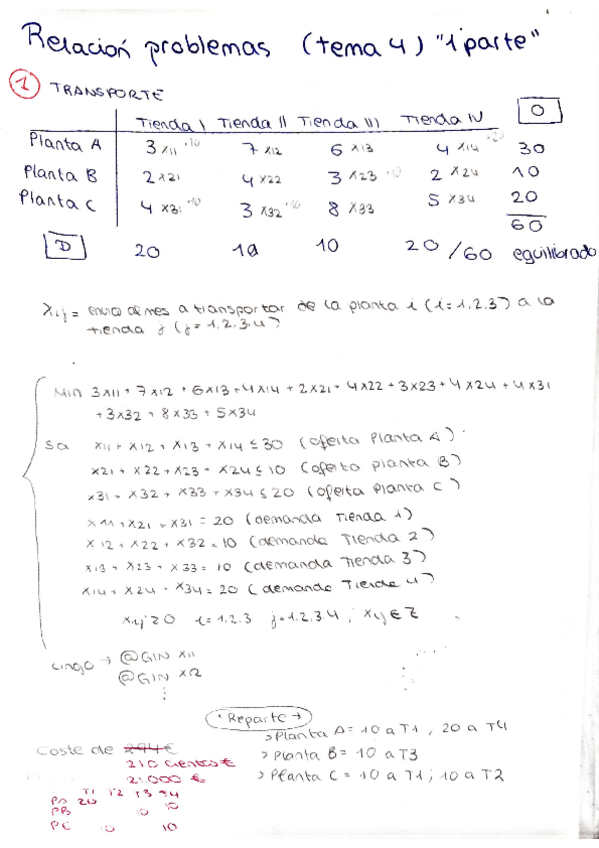 Relación problemas (tema 4) "1ª parte"
1 TRANSPORTE
Tienda I Tienda II Tienda III Tienda IV O
Planta A 3 x11 ·10 7 x12 6 x13 4 x14 ·20 30
Planta B 2 x21 4 x22 3 x23 ·10 2 x24 10
Planta C 4 x31 ·10 3 x32 ·10 8 x33 5 x34 20
60
D 20 10 10 20 /60 equilibrado
Xij = a transportar de la planta i (i=1.2.3) a la
tienda j (j=1.2.3.4)
Min 3x11 + 7x12 + 6x13 + 4x14 + 2x21 + 4x22 + 3x23 + 4x24 + 4x31
+ 3x32 + 8x33 + 5x34
sa x11 + x12 + x13 + x14 ≤ 30 (oferta Planta A)
x21 + x22 + x23 + x24 ≤ 10 (oferta planta B)
x31 + x32 + x33 + x34 ≤ 20 (oferta Planta C)
x11 + x21 + x31 = 20 (demanda Tienda 1)
x12 + x22 + x32 = 10 (demanda Tienda 2)
x13 + x23 + x33 = 10 (demanda Tienda 3)
x14 + x24 + x34 = 20 (demanda Tienda 4)
xij ≥ 0 i=1.2.3 j=1.2.3.4 ; xij ∈ Z
Lingo → @GIN x11
@GIN x12
⋮
· Reparte →
> Planta A = 10 a T1, 20 a T4
> Planta B = 10 a T3
> Planta C = 10 a T1; 10 a T2
Coste de 294€
210 cientos €
21.000 €
T1 T2 T3 T4
PA 20 10
PB 10
PC 10 10